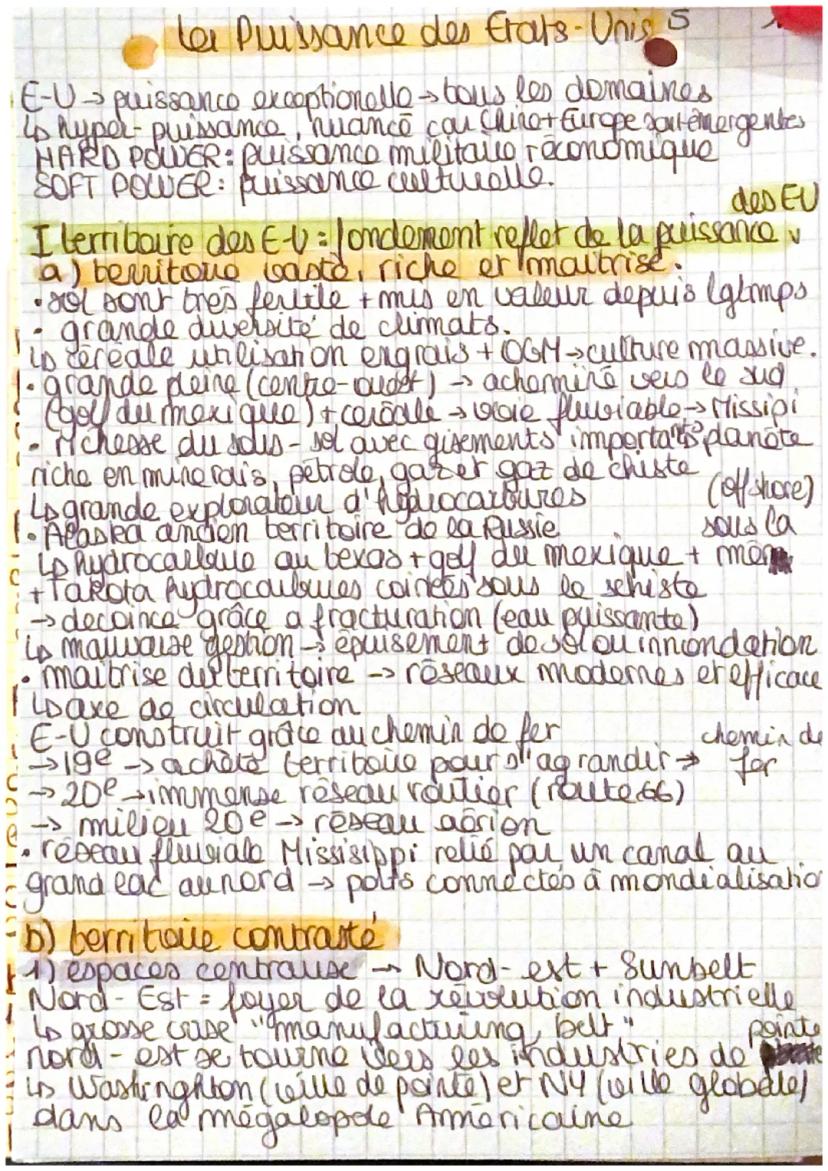 La Puissance des Etats-Unis
E-U → puissance exceptionelle → tous les domaines
↳ hyper-puissance, nuancé car Chine + Europe sont émergentes
HARD POWER : puissance militaire, économique
SOFT POWER : puissance culturelle.
I territoire des E-U : fondement reflet de la puissance des EU
a) territoire vaste, riche et maitrisé.
• sol sont très fertile + mis en valeur depuis lgtmps
• grande diversité de climats.
↳ céréale utilisation engrais + OGM → culture massive.
• grande pleine (centre-ouest) → acheminé vers le sud
(golf du mexique) + céréale → voie fluviable → Missipi
• richesse du sous-sol avec gisements importants planète
riche en minerais, pétrole, gaz et gaz de chiste
↳ grande explorateur d'hydrocarbures (offshore)
• Alaska ancien territoire de la Russie sous la
↳ hydrocarbure au texas + golf du mexique + mer
+ Takota hydrocarbures coincées sous le schiste
→ decoince grâce a fracturation (eau puissante)
↳ mauvaise gestion → épuisement de sol ou innondation
• maitrise du territoire → réseaux modernes et efficace
↳ axe de circulation
E-U construit grâce au chemin de fer
→ 19e → achète territoire pour s'agrandir → chemin de fer
→ 20e → immense réseau routier (route 66)
→ milieu 20e → réseau aérien
• réseau fluviale Mississippi relié par un canal au
grand lac au nord → ports connectés à mondialisatio
b) territoire contrasté
1) espaces centrause → Nord-est + Sunbelt
Nord-Est = foyer de la révolution industrielle
↳ grosse crise "manufacturing belt"
nord-est se tourne vers les industries de pointe
↳ Washinghton (ville de pointe) et NY (ville globale)
dans la mégalopole Américaine